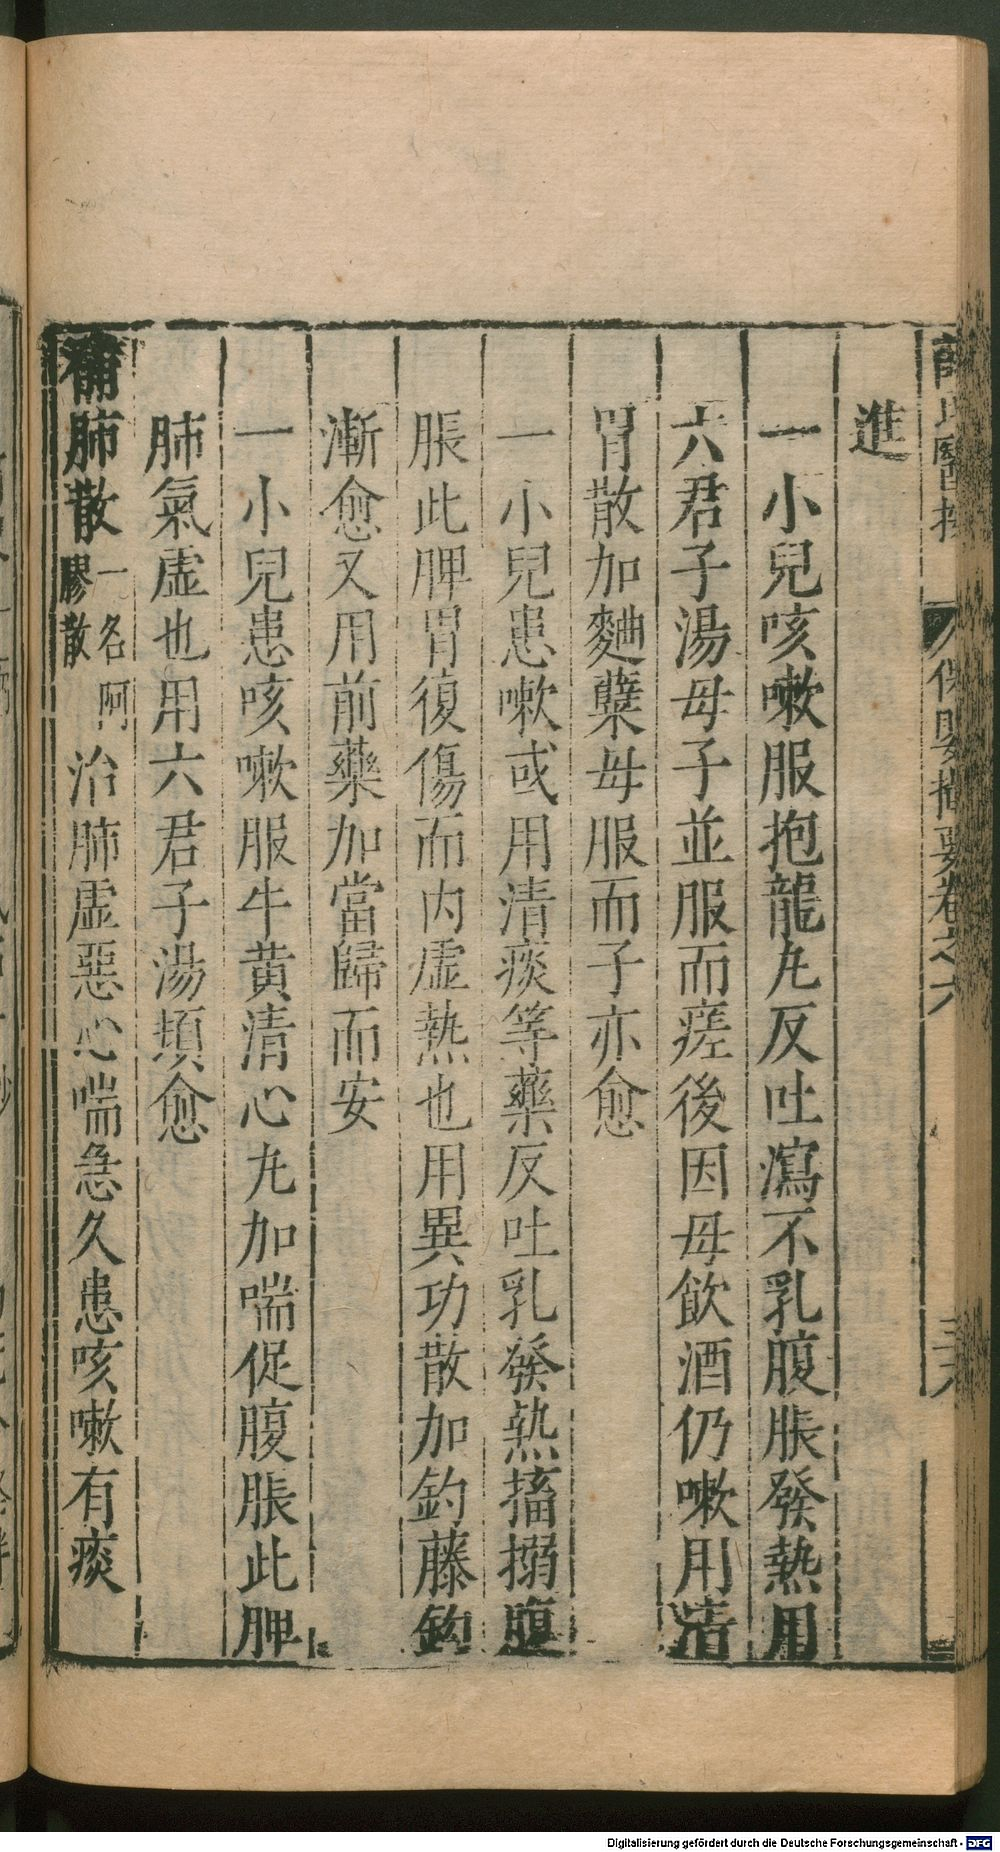 薛氏醫按 保嬰撮要卷之六 三六
進
一小兒咳嗽服抱龍丸反吐瀉不乳腹脹發熱用
六君子湯母子並服而瘥後因母飲酒仍嗽用清
胃散加麯蘗母服而子亦愈
一小兒患嗽或用清痰等藥反吐乳發熱搐搦腹
脹此脾胃復傷而内虛熱也用異功散加釣藤鈎
漸愈又用前藥加當歸而安
一小兒患咳嗽服牛黄清心丸加喘促腹脹此脾
肺氣虛也用六君子湯頓愈
補肺散一名阿膠散 治肺虛惡心喘急久患咳嗽有痰
Digitalisierung gefördert durch die Deutsche Forschungsgemeinschaft - DFG